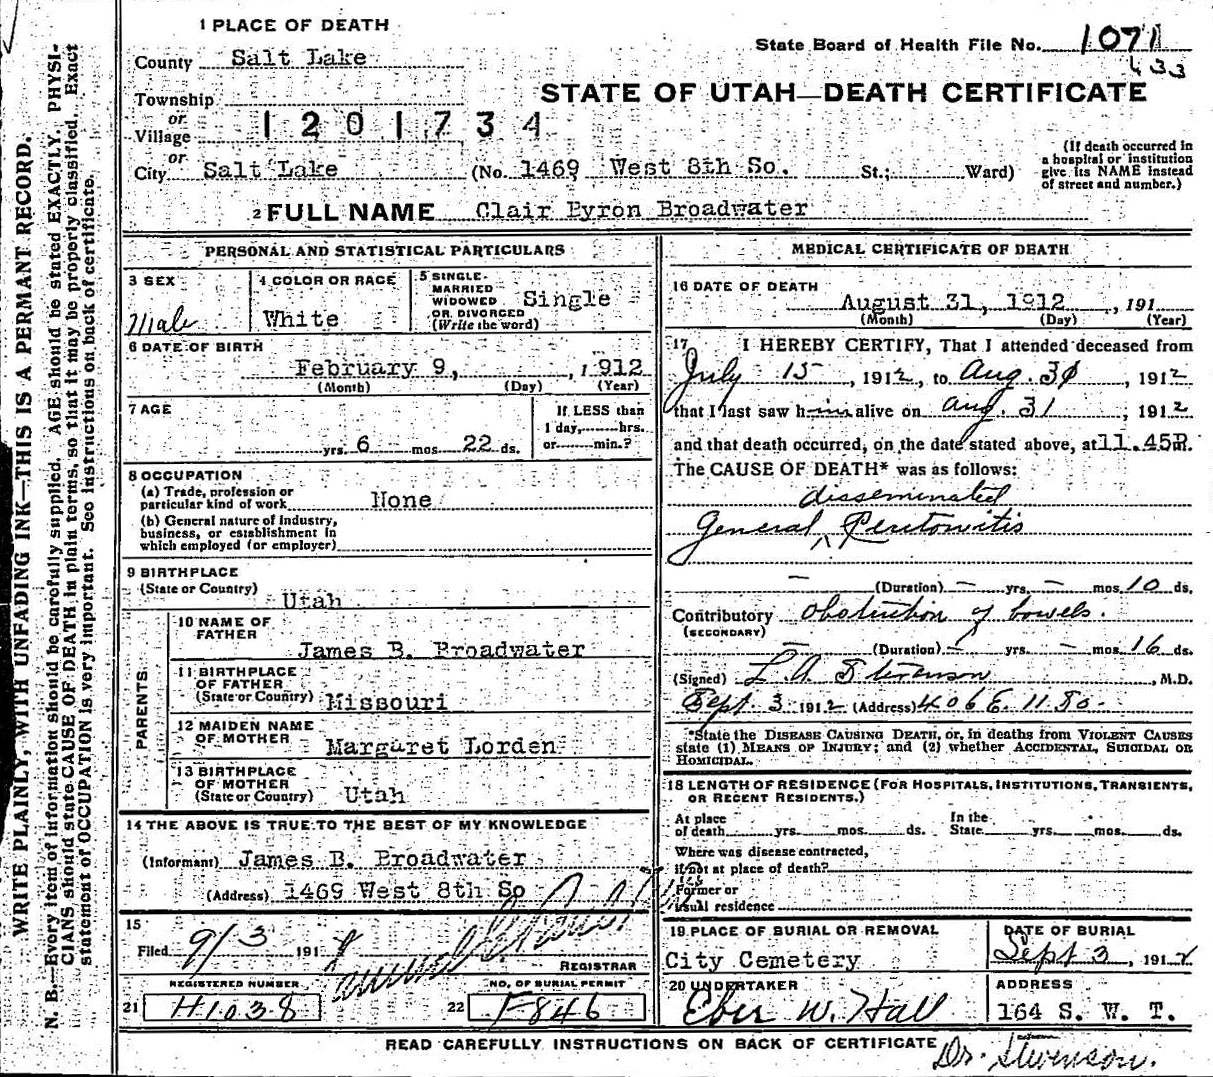 1 PLACE OF DEATH
State Board of Health File No. 1071
433
County Salt Lake
STATE OF UTAH—DEATH CERTIFICATE
Township
or
Village
1201734
or
City Salt Lake (No. 1469 West 8th So. St.; Ward)
(If death occurred in
a hospital or institution
give its NAME instead
of street and number.)
2 FULL NAME Clair Byron Broadwater
PERSONAL AND STATISTICAL PARTICULARS
3 SEX
Male
4 COLOR OR RACE
White
5 SINGLE-
MARRIED
WIDOWED
OR DIVORCED
(Write the word)
Single
6 DATE OF BIRTH
February 9, , 1912
(Month) (Day) (Year)
7 AGE
yrs. 6 mos. 22 ds.
If LESS than
1 day, hrs.
or min.?
8 OCCUPATION
(a) Trade, profession or
particular kind of work None
(b) General nature of industry,
business, or establishment in
which employed (or employer)
9 BIRTHPLACE
(State or Country) Utah
PARENTS
10 NAME OF
FATHER James B. Broadwater
11 BIRTHPLACE
OF FATHER
(State or Country) Missouri
12 MAIDEN NAME
OF MOTHER Margaret Lorden
13 BIRTHPLACE
OF MOTHER
(State or Country) Utah
14 THE ABOVE IS TRUE TO THE BEST OF MY KNOWLEDGE
(Informant) James B. Broadwater
(Address) 1469 West 8th So
15
Filed 9/3 191
REGISTRAR
REGISTERED NUMBER
21 H1038
NO. OF BURIAL PERMIT
22 F846
MEDICAL CERTIFICATE OF DEATH
16 DATE OF DEATH
August 31, 1912 , 191
(Month) (Day) (Year)
17 I HEREBY CERTIFY, That I attended deceased from
July 15 , 1912, to Aug. 31 , 1912
that I last saw him alive on Aug. 31 , 1912
and that death occurred, on the date stated above, at 11.45P.m.
The CAUSE OF DEATH* was as follows:
disseminated
General ^ Peritonitis
(Duration) – yrs. – mos. 10 ds.
Contributory Obstruction of bowels.
(SECONDARY)
(Duration) – yrs. – mos. 16 ds.
(Signed) L. A. Stevenson , M.D.
Sept 3 1912 (Address) 406 E. 11 So.
*State the DISEASE CAUSING DEATH, or, in deaths from VIOLENT CAUSES
state (1) MEANS OF INJURY; and (2) whether ACCIDENTAL, SUICIDAL OR
HOMICIDAL.
18 LENGTH OF RESIDENCE (FOR HOSPITALS, INSTITUTIONS, TRANSIENTS,
OR RECENT RESIDENTS.)
At place
of death yrs. mos. ds.
In the
State yrs. mos. ds.
Where was disease contracted,
if not at place of death?
Former or
usual residence
19 PLACE OF BURIAL OR REMOVAL
City Cemetery
DATE OF BURIAL
Sept 3 , 1912
20 UNDERTAKER
Eber W. Hall
ADDRESS
164 S. W. T.
READ CAREFULLY INSTRUCTIONS ON BACK OF CERTIFICATE
Dr. Stevenson.
WRITE PLAINLY, WITH UNFADING INK—THIS IS A PERMANT RECORD.
N. B.—Every item of information should be carefully supplied. AGE should be stated EXACTLY. PHYSI-
CIANS should state CAUSE OF DEATH in plain terms, so that it may be properly classified. Exact
statement of OCCUPATION is very important. See instructions on back of certificate.